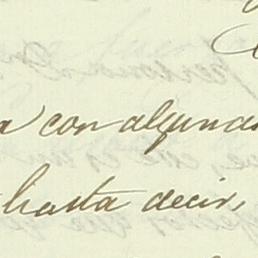 a con algunas
hasta decir,